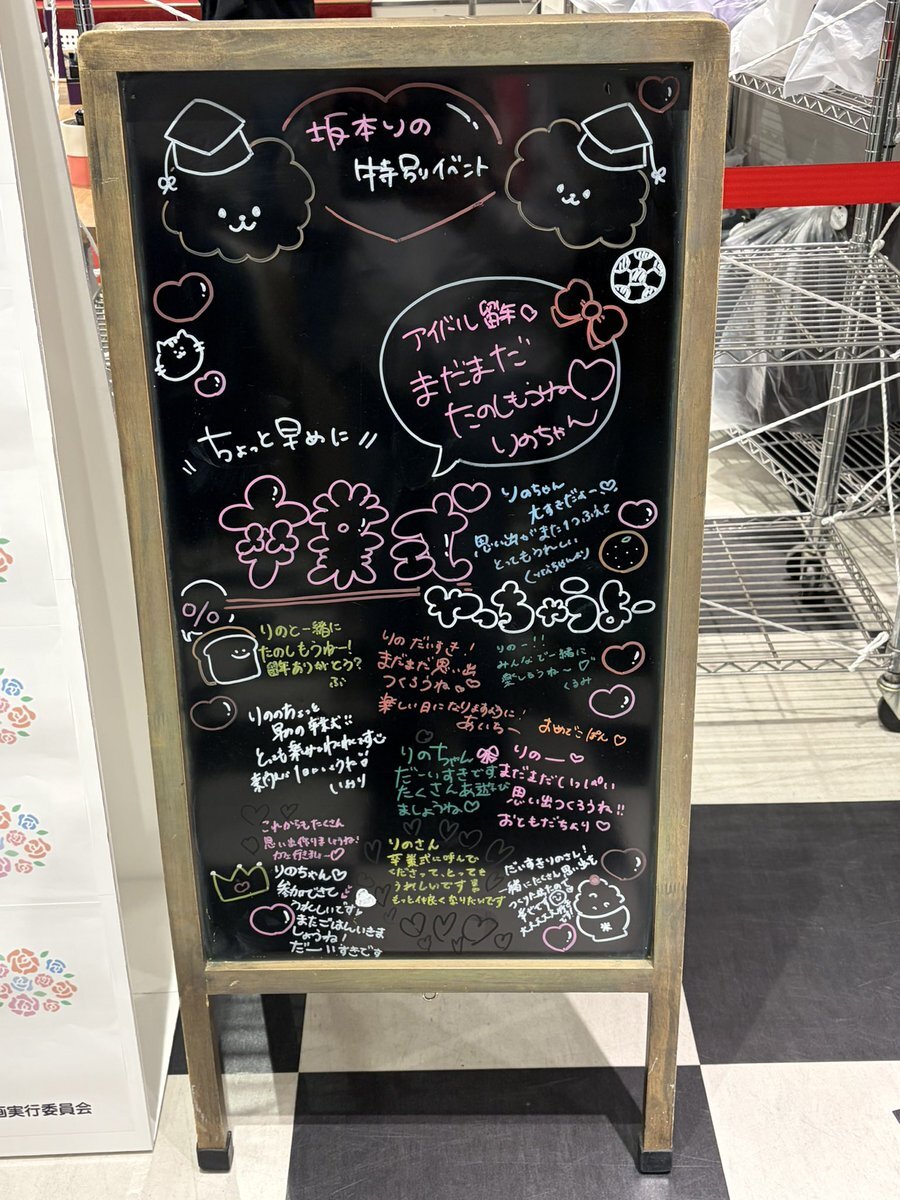 坂本りの
特別イベント
アイドル留年♡
まだまだ
たのしもうね♡
りのちゃん
ちょっと早めに
卒業式
やっちゃうよー
りのちゃん
大すきだよー♡
思い出がまた1つふえて
とってもうれしい
りのと一緒に
たのしもうねー!
留年ありがとう?
りの だいすき!
まだまだ思い出
つくろうね♡♡
楽しい日になりますように!
あいちー
りのー!!
みんなで一緒に
楽しもうね〜♡
くるみ
おめでこぱん♡
りののちょっと
早めの卒業式!!
いおり
りのちゃん
だーいすきです
たくさんお遊び
ましょうね♡
りのー♡
まだまだいっぱい
思い出つくろうね!!
おともだちより♡
これからもたくさん
思い出作りましょうね!
りのちゃん♡
参加できて
うれしいです
またごはんいきま
しょうね!
だーいすきです
りのさん
卒業式に呼んで
くださって、とっても
うれしいです!!
もっと仲良くなりたいです
だいすきりのさん!
一緒にたくさん思い出を
画実行委員会